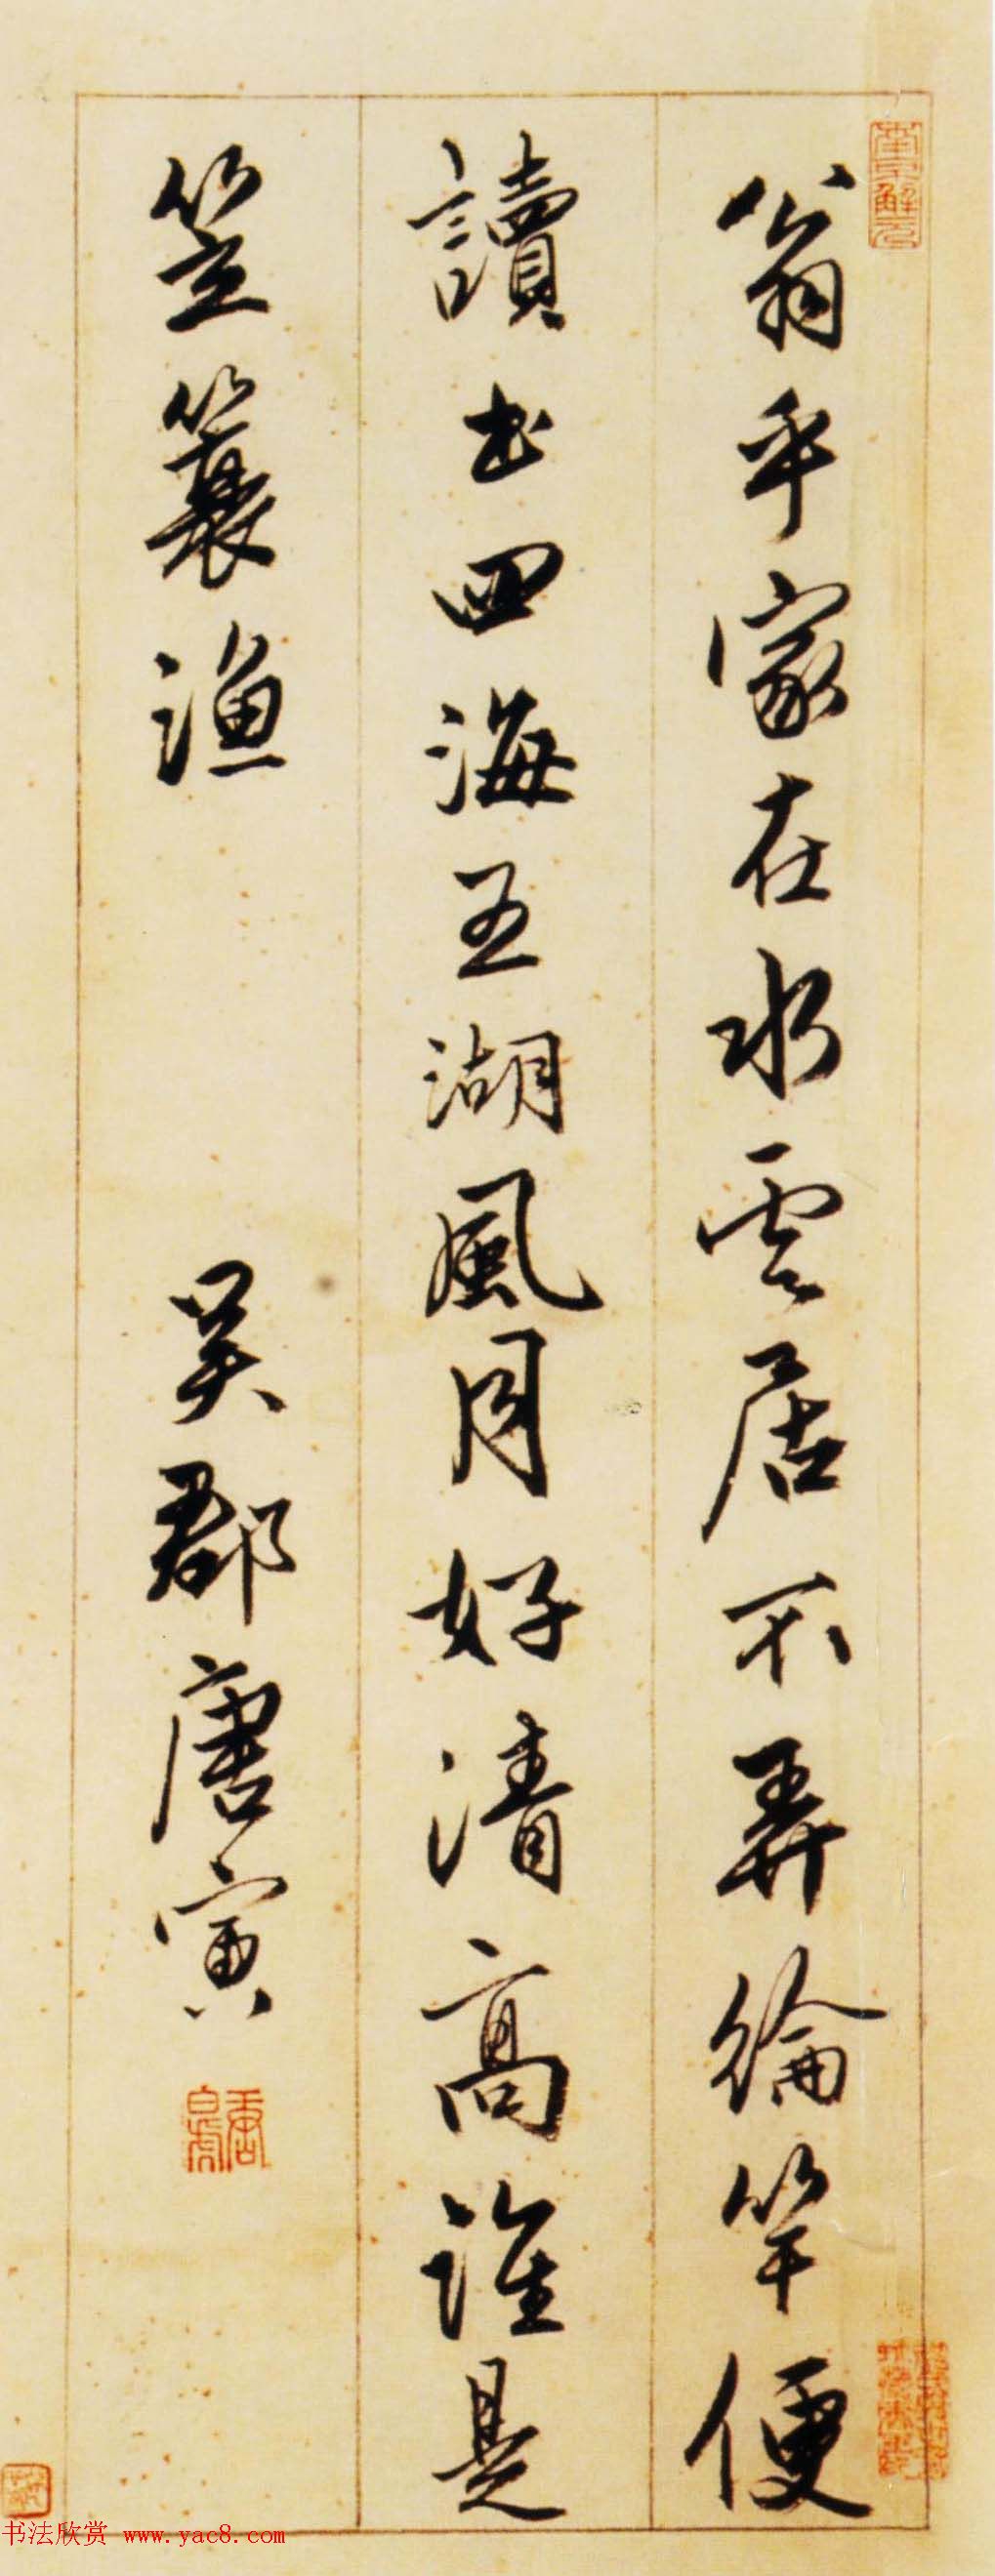 翁乎家在水雲居不弄綸竿便
讀书四海五湖風月好清高誰是
笠簑漁 吴郡唐寅
南京解元
书法欣赏 www.yac8.com